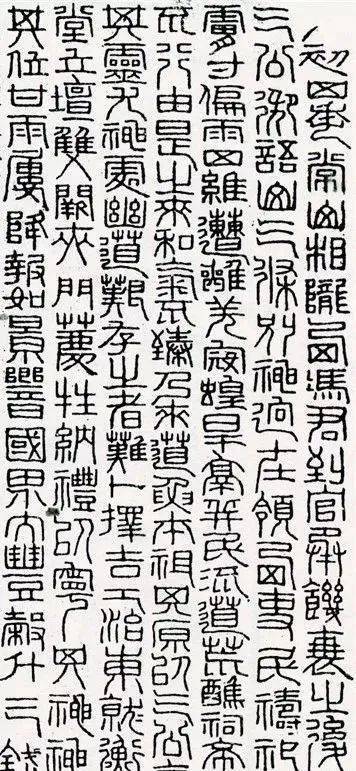 初四年常山相隴西馮君到官承饑衰之後
三公御語山三條別神迥在領西吏民禱祀
膚寸偏雨四維遭離羌寇蝗旱鬲并民流道荒醮祠希
不行由是之來和氣不臻乃來道要本祖其原以三公
其靈尤神處幽道艱存之者難卜擇吉工治東就衡
堂立壇雙闕夾門薦牲納禮以寧其神神
其位甘雨屢降報如景響國界大豐穀升三錢